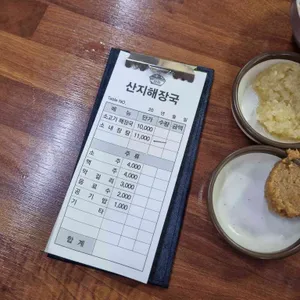 산지해장국
Table NO. 20 년 월 일
메 뉴 단가 수량 금액
소고기 해장국 10,000
소 내 장 탕 11,000
주 류
소 주 4,000
맥 주 4,000
막 걸 리 3,000
음 료 수 2,000
공 기 밥 1,000
기 타
합 계